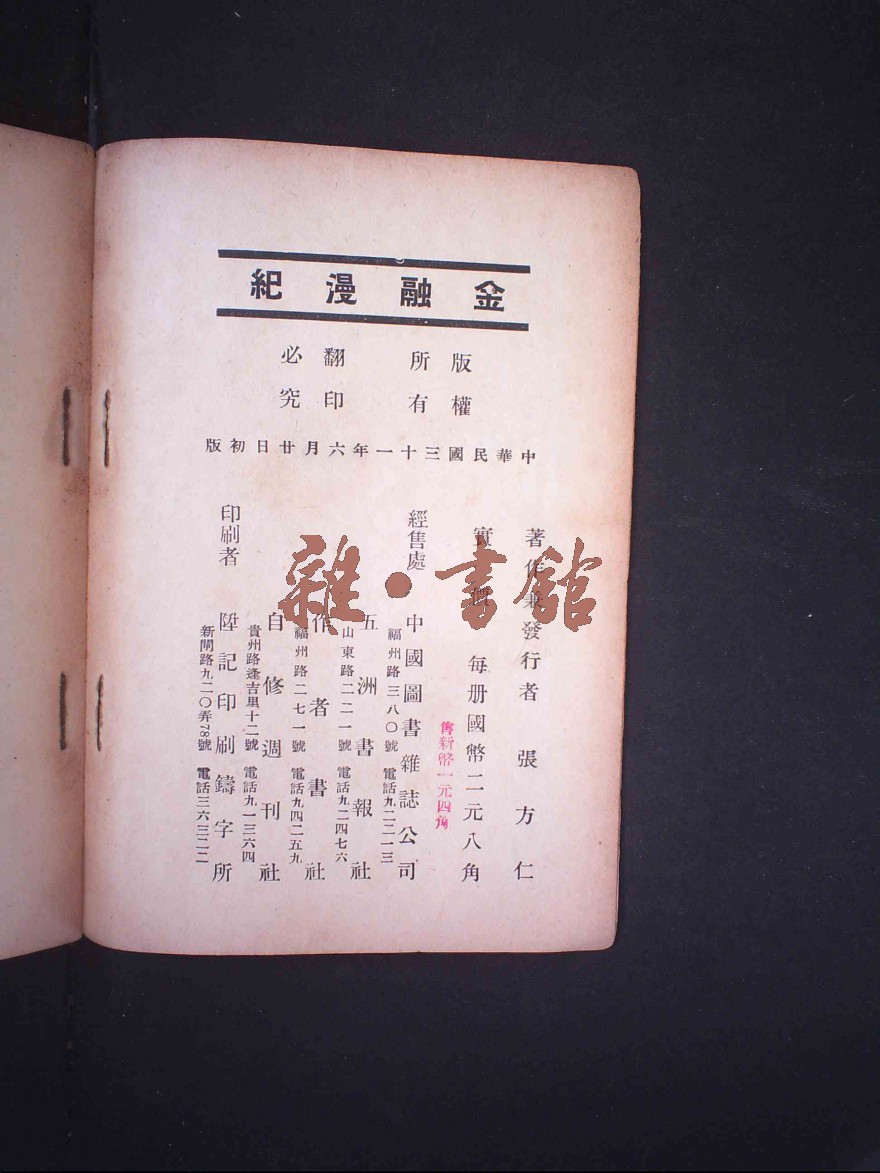 金融漫紀
版權所有
翻印必究
中華民國三十一年六月廿日初版
著作兼發行者 張方仁
實價 每册國幣二元八角
售新幣一元四角
經售處 中國圖書雜誌公司
福州路三八〇號 電話九二二一三
五洲書報社
山東路二二一號 電話九二四七六
作者書社
福州路二七一號 電話九四二五九
自修週刊社
貴州路逢吉里十二號 電話九一三六四
印刷者 陞記印刷鑄字所
新閘路九二〇弄78號 電話三六三二二
雜·書館